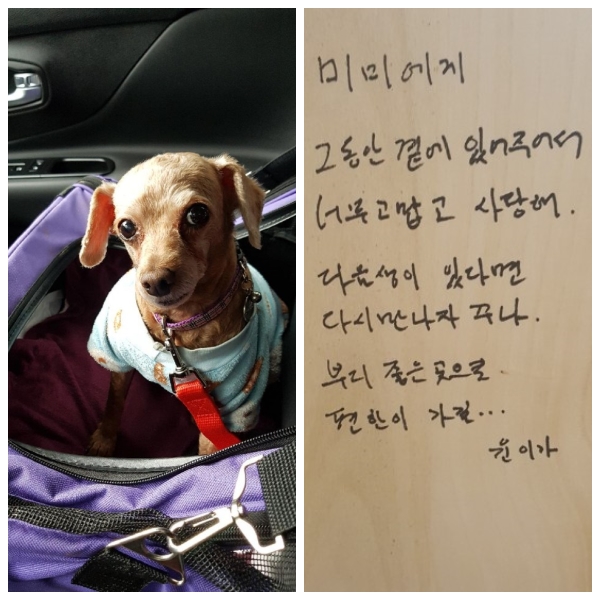 미미에게
그동안 곁에 있어주어서
너무 고맙고 사랑해.
다음생이 있다면
다시 만나자 꾸나.
부디 좋은 곳으로
편한이 가렴...
윤이가